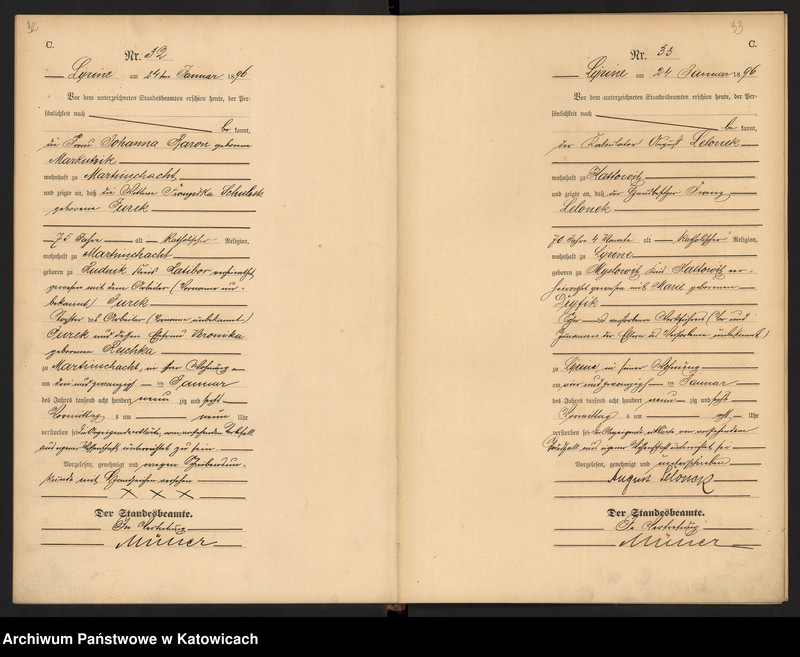 32
C.
Nr. 32
Lipine am 24ten Januar 1896
Vor dem unterzeichneten Standesbeamten erschien heute, der Per-
sönlichkeit nach
be kannt,
die Frau Johanna Baron geborene
wohnhaft zu Martinschacht
und zeigte an, daß die Wittwe Franziska
geborene Jurek
75 Jahre alt katholischer Religion,
wohnhaft zu Martinschacht
geboren zu Rudnik Kreis Ratibor verheirathet
gewesen mit dem Arbeiter (Vorname un-
bekannt) Jurek
Tochter des Arbeiter (Vorname unbekannt)
Jurek und dessen Ehefrau Veronika
geborene Reschka
zu Martinschacht, in ihrer Wohnung
am drei und zwanzigst en Januar
des Jahres tausend acht hundert neun zig und sechs
Vormittag s um neun Uhr
verstorben sei
und eigener Wissenschaft unterrichtet zu sein
Vorgelesen, genehmigt und wegen Schreibensun-
kunde mit Handzeichen versehen
x x x
Der Standesbeamte.
In Vertretung
Müller
33
C.
Nr. 33
Lipine am 24 Januar 1896
Vor dem unterzeichneten Standesbeamten erschien heute, der Per-
sönlichkeit nach
be kannt,
der Kalculator August Lelonek
wohnhaft zu Kattowitz
und zeigte an, daß der Franz
Lelonek
70 Jahre 4 Monate alt katholischer Religion,
wohnhaft zu Lipine
geboren zu Myslowitz Kreis Kattowitz ver-
heirathet gewesen mit Marie geborenen
Sohn des verstorbenen (Vor und
Zunamen der Eltern des Verstorbenen unbekannt)
zu Lipine in seiner Wohnung
am vier und zwanzigst en Januar
des Jahres tausend acht hundert neun zig und sechs
Vormittag s um Uhr
verstorben sei
und eigener Wissenschaft unterrichtet sei
Vorgelesen, genehmigt und unterschrieben
August Lelonek
Der Standesbeamte.
In Vertretung
Müller
Archiwum Państwowe w Katowicach